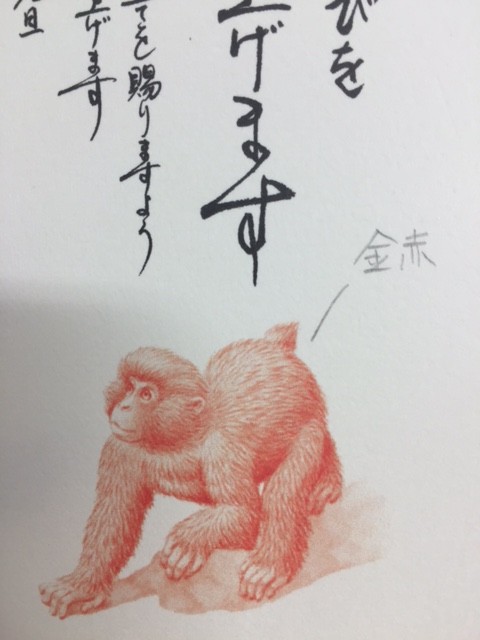 びを
上げます
てを賜りますよう
上げます
旦
金赤